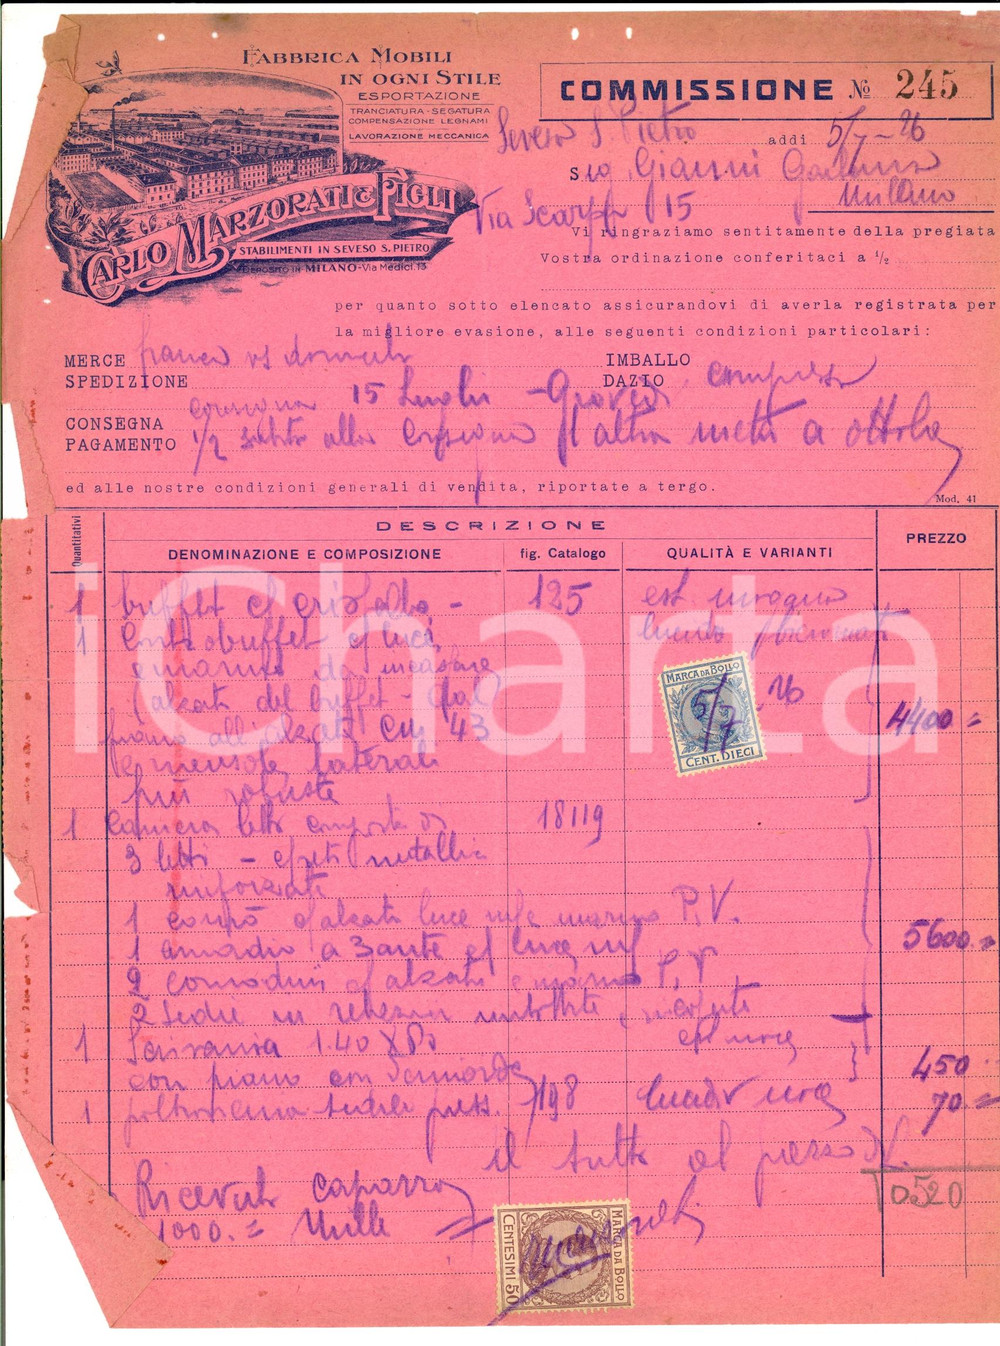 FABBRICA MOBILI
IN OGNI STILE
ESPORTAZIONE
TRANCIATURA - SEGATURA
COMPENSAZIONE LEGNAMI
LAVORAZIONE MECCANICA
CARLO MARZORATI & FIGLI
STABILIMENTI IN SEVESO S. PIETRO
DEPOSITO IN MILANO - Via Medici, 15
COMMISSIONE No 245
Seveso S. Pietro addi 5/7-26
Sig Gianni
Milano
Via Scarpa 15
Vi ringraziamo sentitamente della pregiata
Vostra ordinazione conferitaci a 1/2
per quanto sotto elencato assicurandovi di averla registrata per
la migliore evasione, alle seguenti condizioni particolari:
MERCE franco vs domicilio IMBALLO
SPEDIZIONE DAZIO compreso
CONSEGNA consegna 15 Luglio - Giovedi
PAGAMENTO 1/2 subito alla consegna l'altra metà a ottobre
ed alle nostre condizioni generali di vendita, riportate a tergo.
Mod. 41
Quantitativi
DESCRIZIONE
PREZZO
DENOMINAZIONE E COMPOSIZIONE fig. Catalogo QUALITÀ E VARIANTI
1 buffet c/ cristallo - 125 est. mogano
1 Controbuffet c/ luce lucido
e marmo da incastrare
alzata del buffet -
MARCA DA BOLLO
5/7 26
CENT. DIECI
piano all'alzata cm 43 4400 =
e mensole laterali
più robuste
1 Camera letto composta di 18119
3 letti - c/reti metalliche
rinforzate
1 comò c/alzata luce marmo P.V.
1 armadio a 3 ante c/ luce 5600 =
2 comodini c/ alzata e marmo P.V.
2 sedie in imbottite e
1 Scrivania 1.40 X 70 est noce
con piano con 450
1 poltroncina sedile press. 7198 lucido noce 70 =
il tutto al prezzo di L.
10520
Ricevuto caparra
1000. = Mille
MARCA DA BOLLO
CENTESIMI 50
iCharta